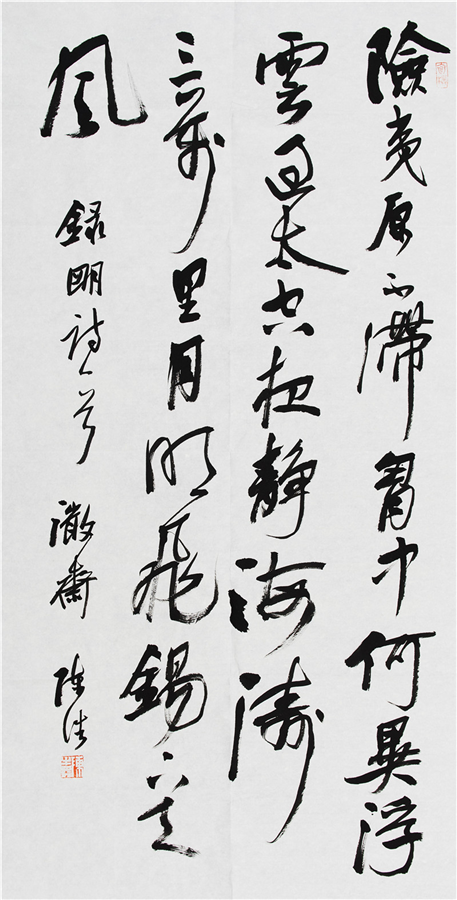 險夷原不滯胷中何異浮
雲過太空夜静海濤
三萬里月明飛錫下天
風
録明詩一首